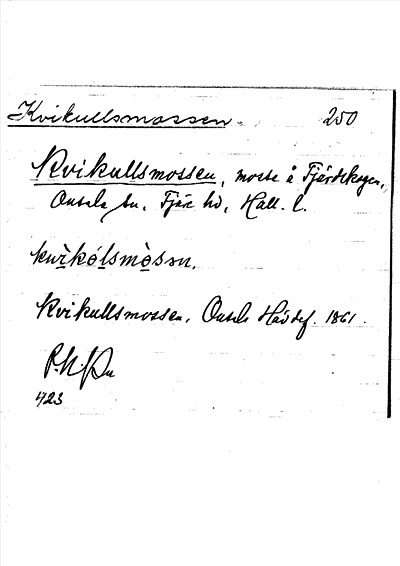 Kvikullsmossen. 250
Kvikullsmossen, mosse å Fjärdskogen,
Onsala sn, Fjäre hd, Hall. l.
kwìkólsmòsan.
Kvikullsmossen, Onsala Hävdef. 1861.
423